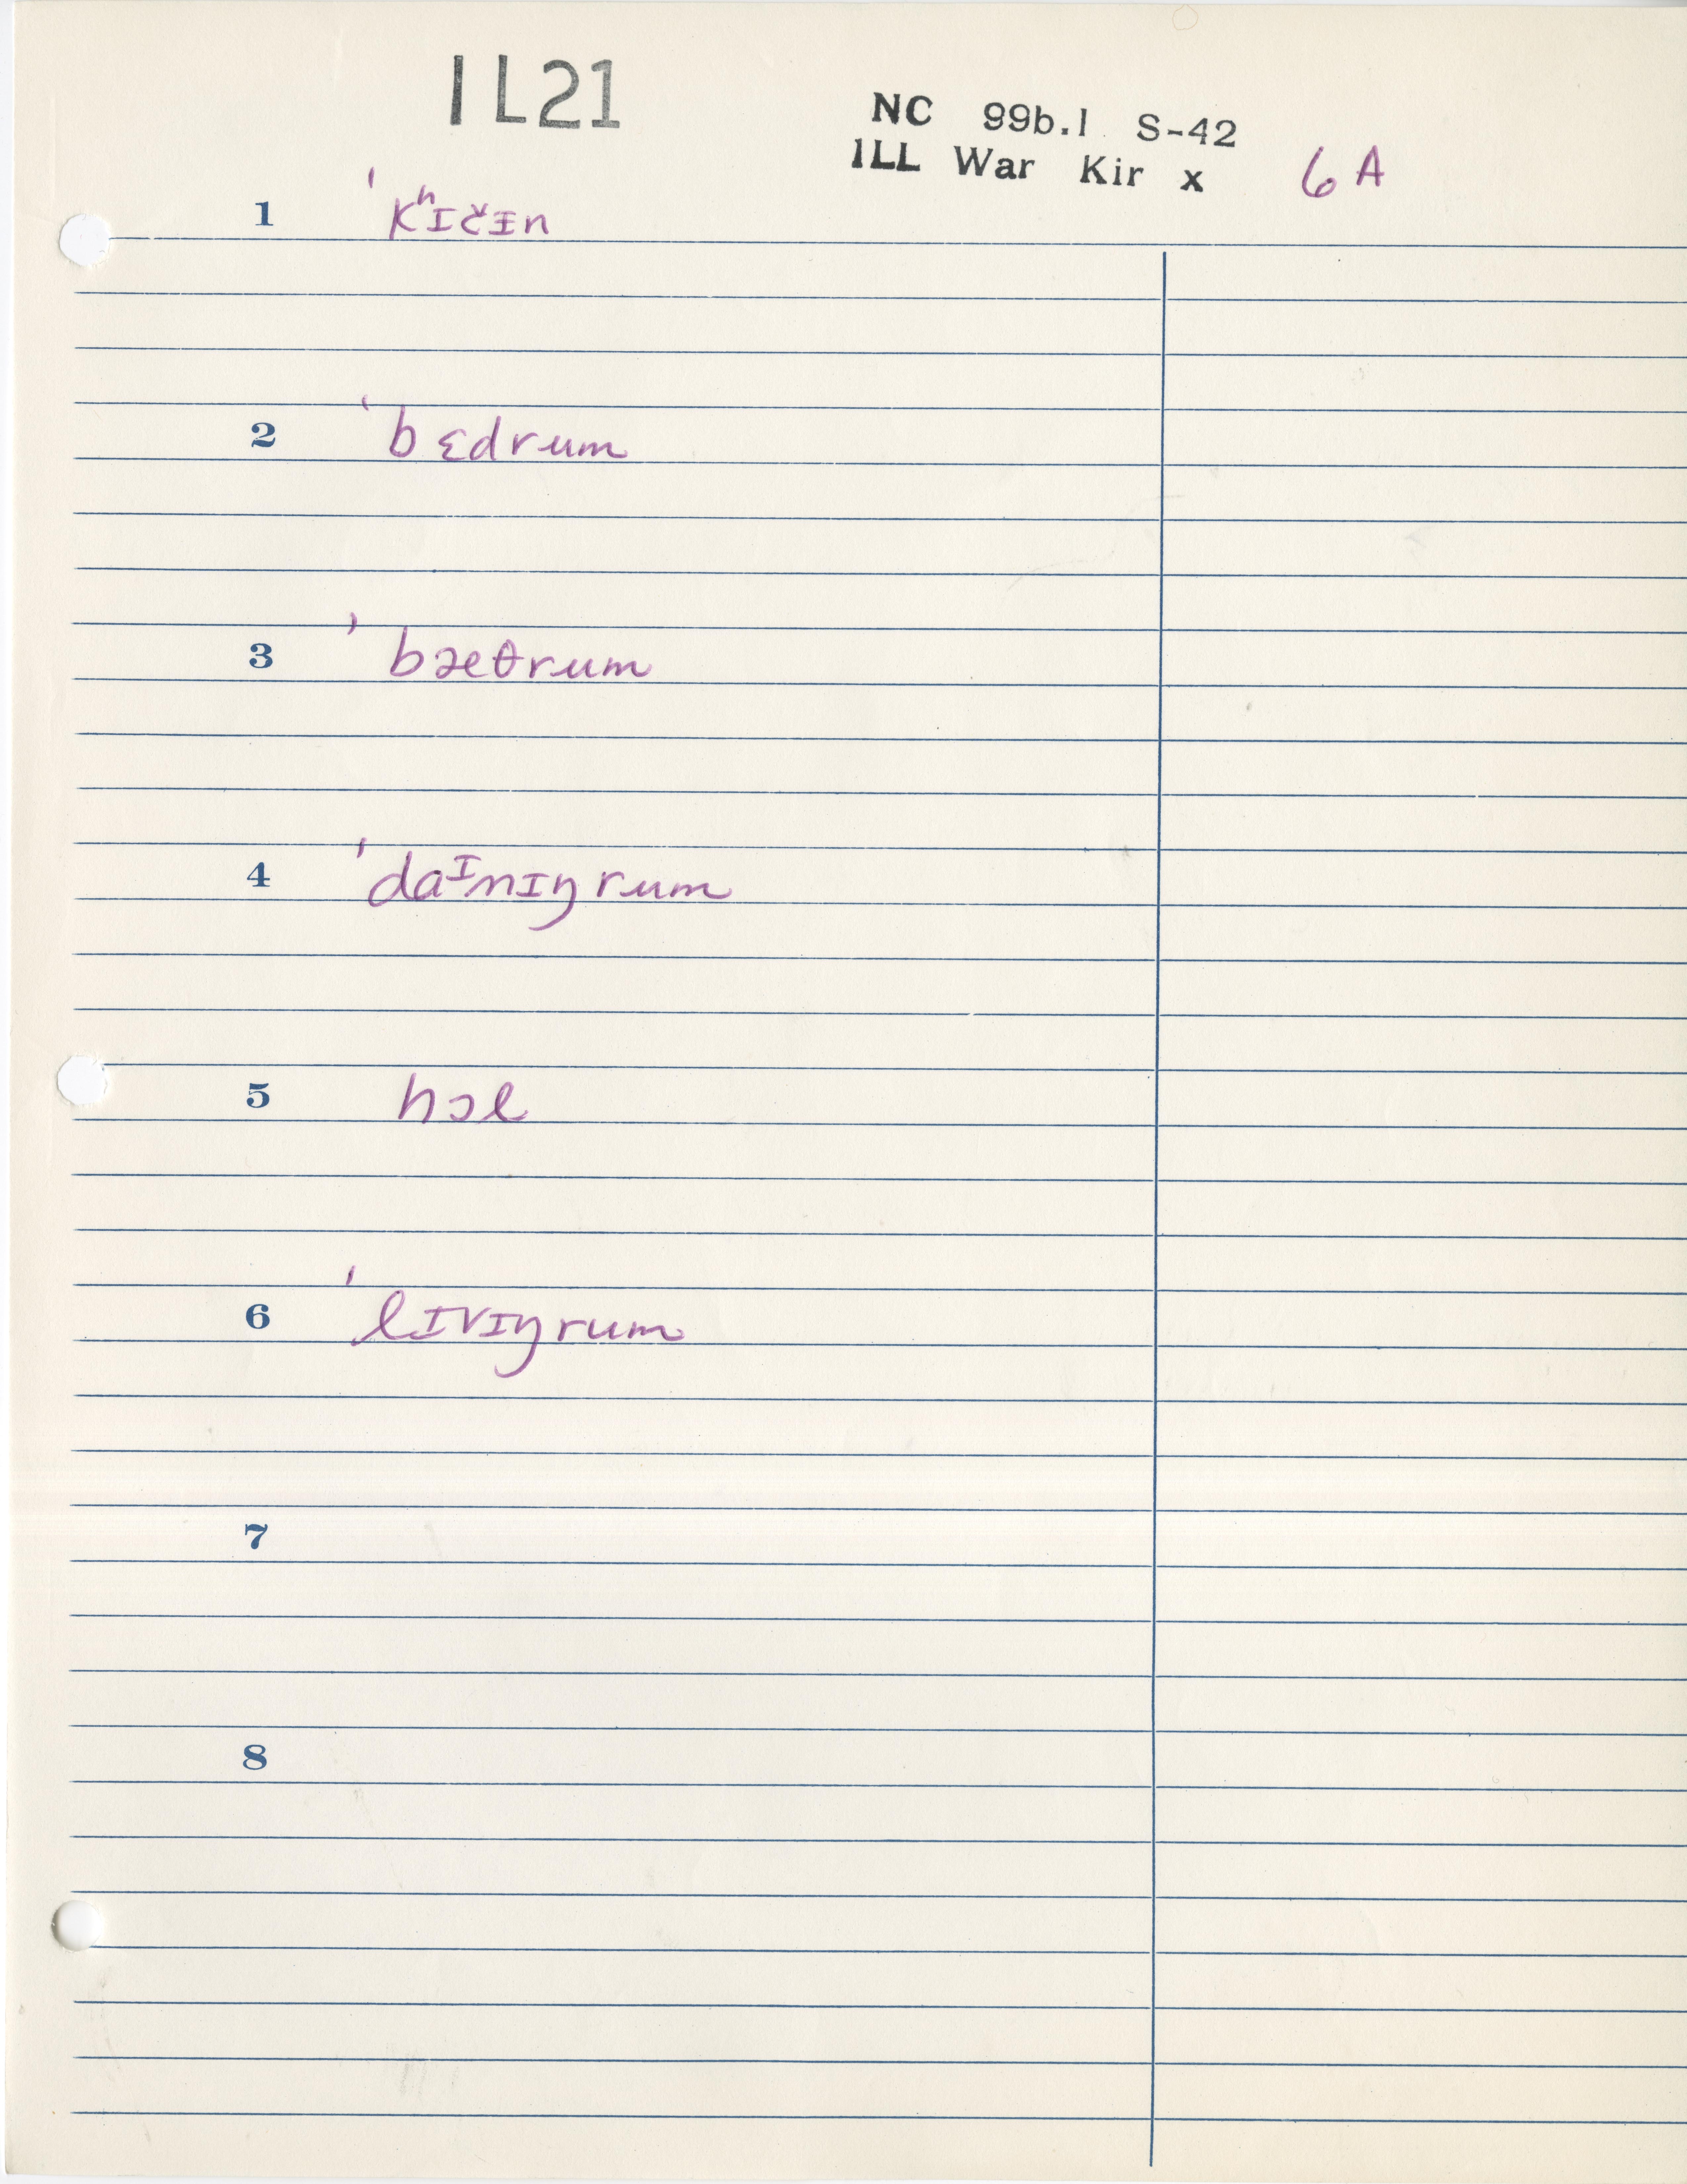 IL21
NC 99b.1 S-42
ILL War Kir x 6A
1 ˈkʰɪčɪ̵n
2 ˈbɛdrum
3 ˈbæθrum
4 ˈdaᶦnɪŋrum
5 hɔl
6 ˈlɪvɪŋrum
7
8